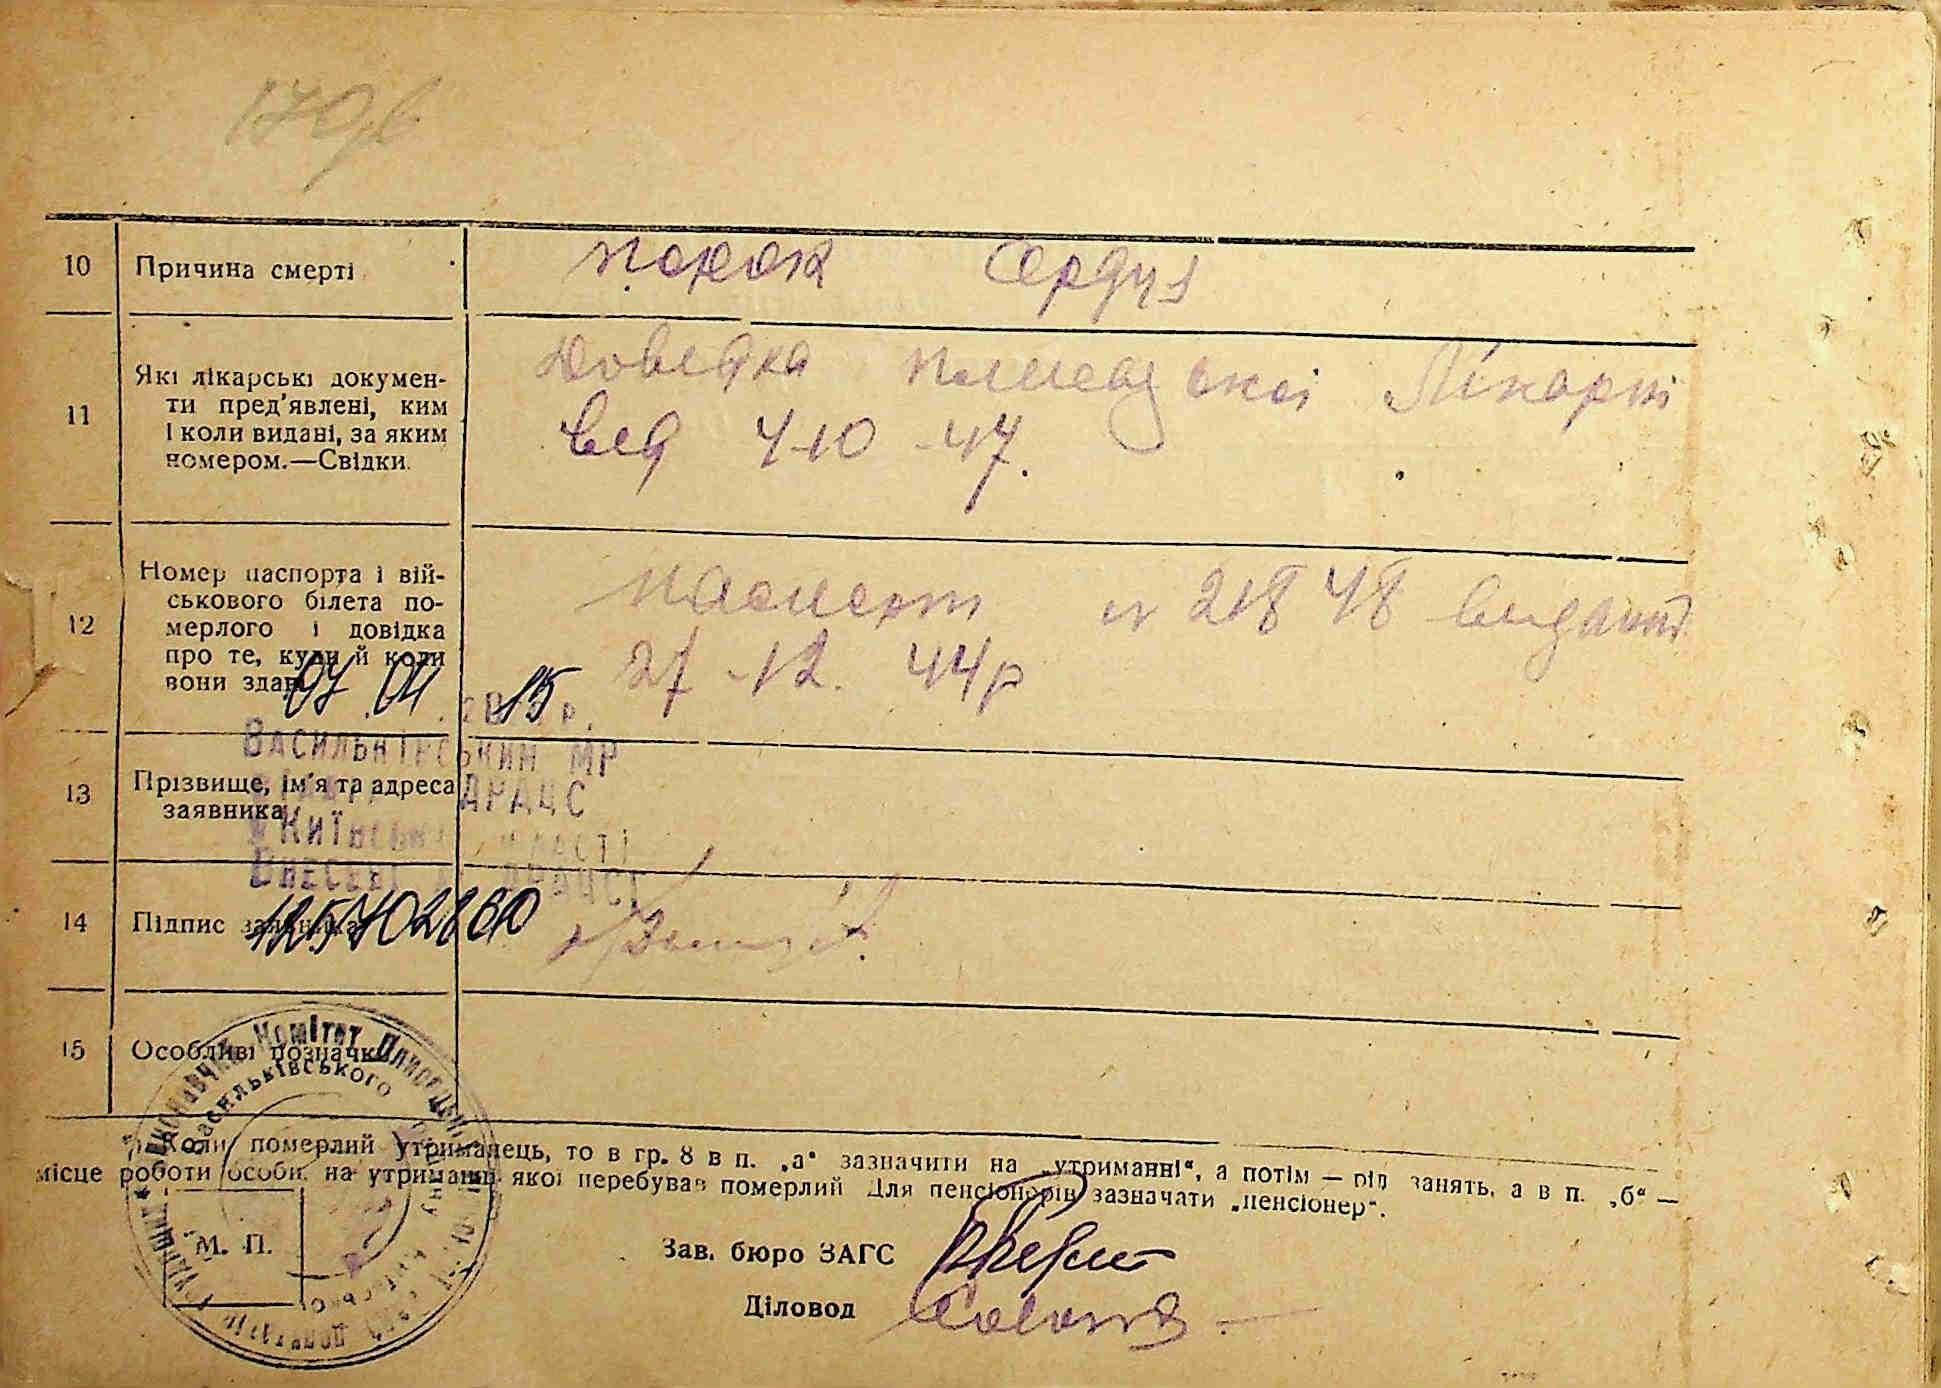 10 Причина смерті порок Сердця
11 Які лікарські докумен-
ти пред'явлені, ким
і коли видані, за яким
номером.—Свідки.
Довідка Плисецької Лікарні
від 4-10-47.
12 Номер паспорта і вій-
ськового білета по-
мерлого і довідка
про те, куди й коли
вони здані
паспорт № 21848 видано
27-12. 44р
07 04 2015 р.
Васильківський МР
13 Прізвище, ім'я та адреса
заявника
ДРАЦС
Київській області
14 Підпис заявника
125702860
15 Особливі позначки
Виконавчий Комітет
Васильківського
*) Коли померлий утриманець, то в гр. 8 в п. „а“ зазначити на „утриманні“, а потім — рід занять, а в п. „б“ —
місце роботи особи, на утриманні якої перебував померлий. Для пенсіонерів зазначати „пенсіонер“.
М. П.
Зав. бюро ЗАГС
Діловод